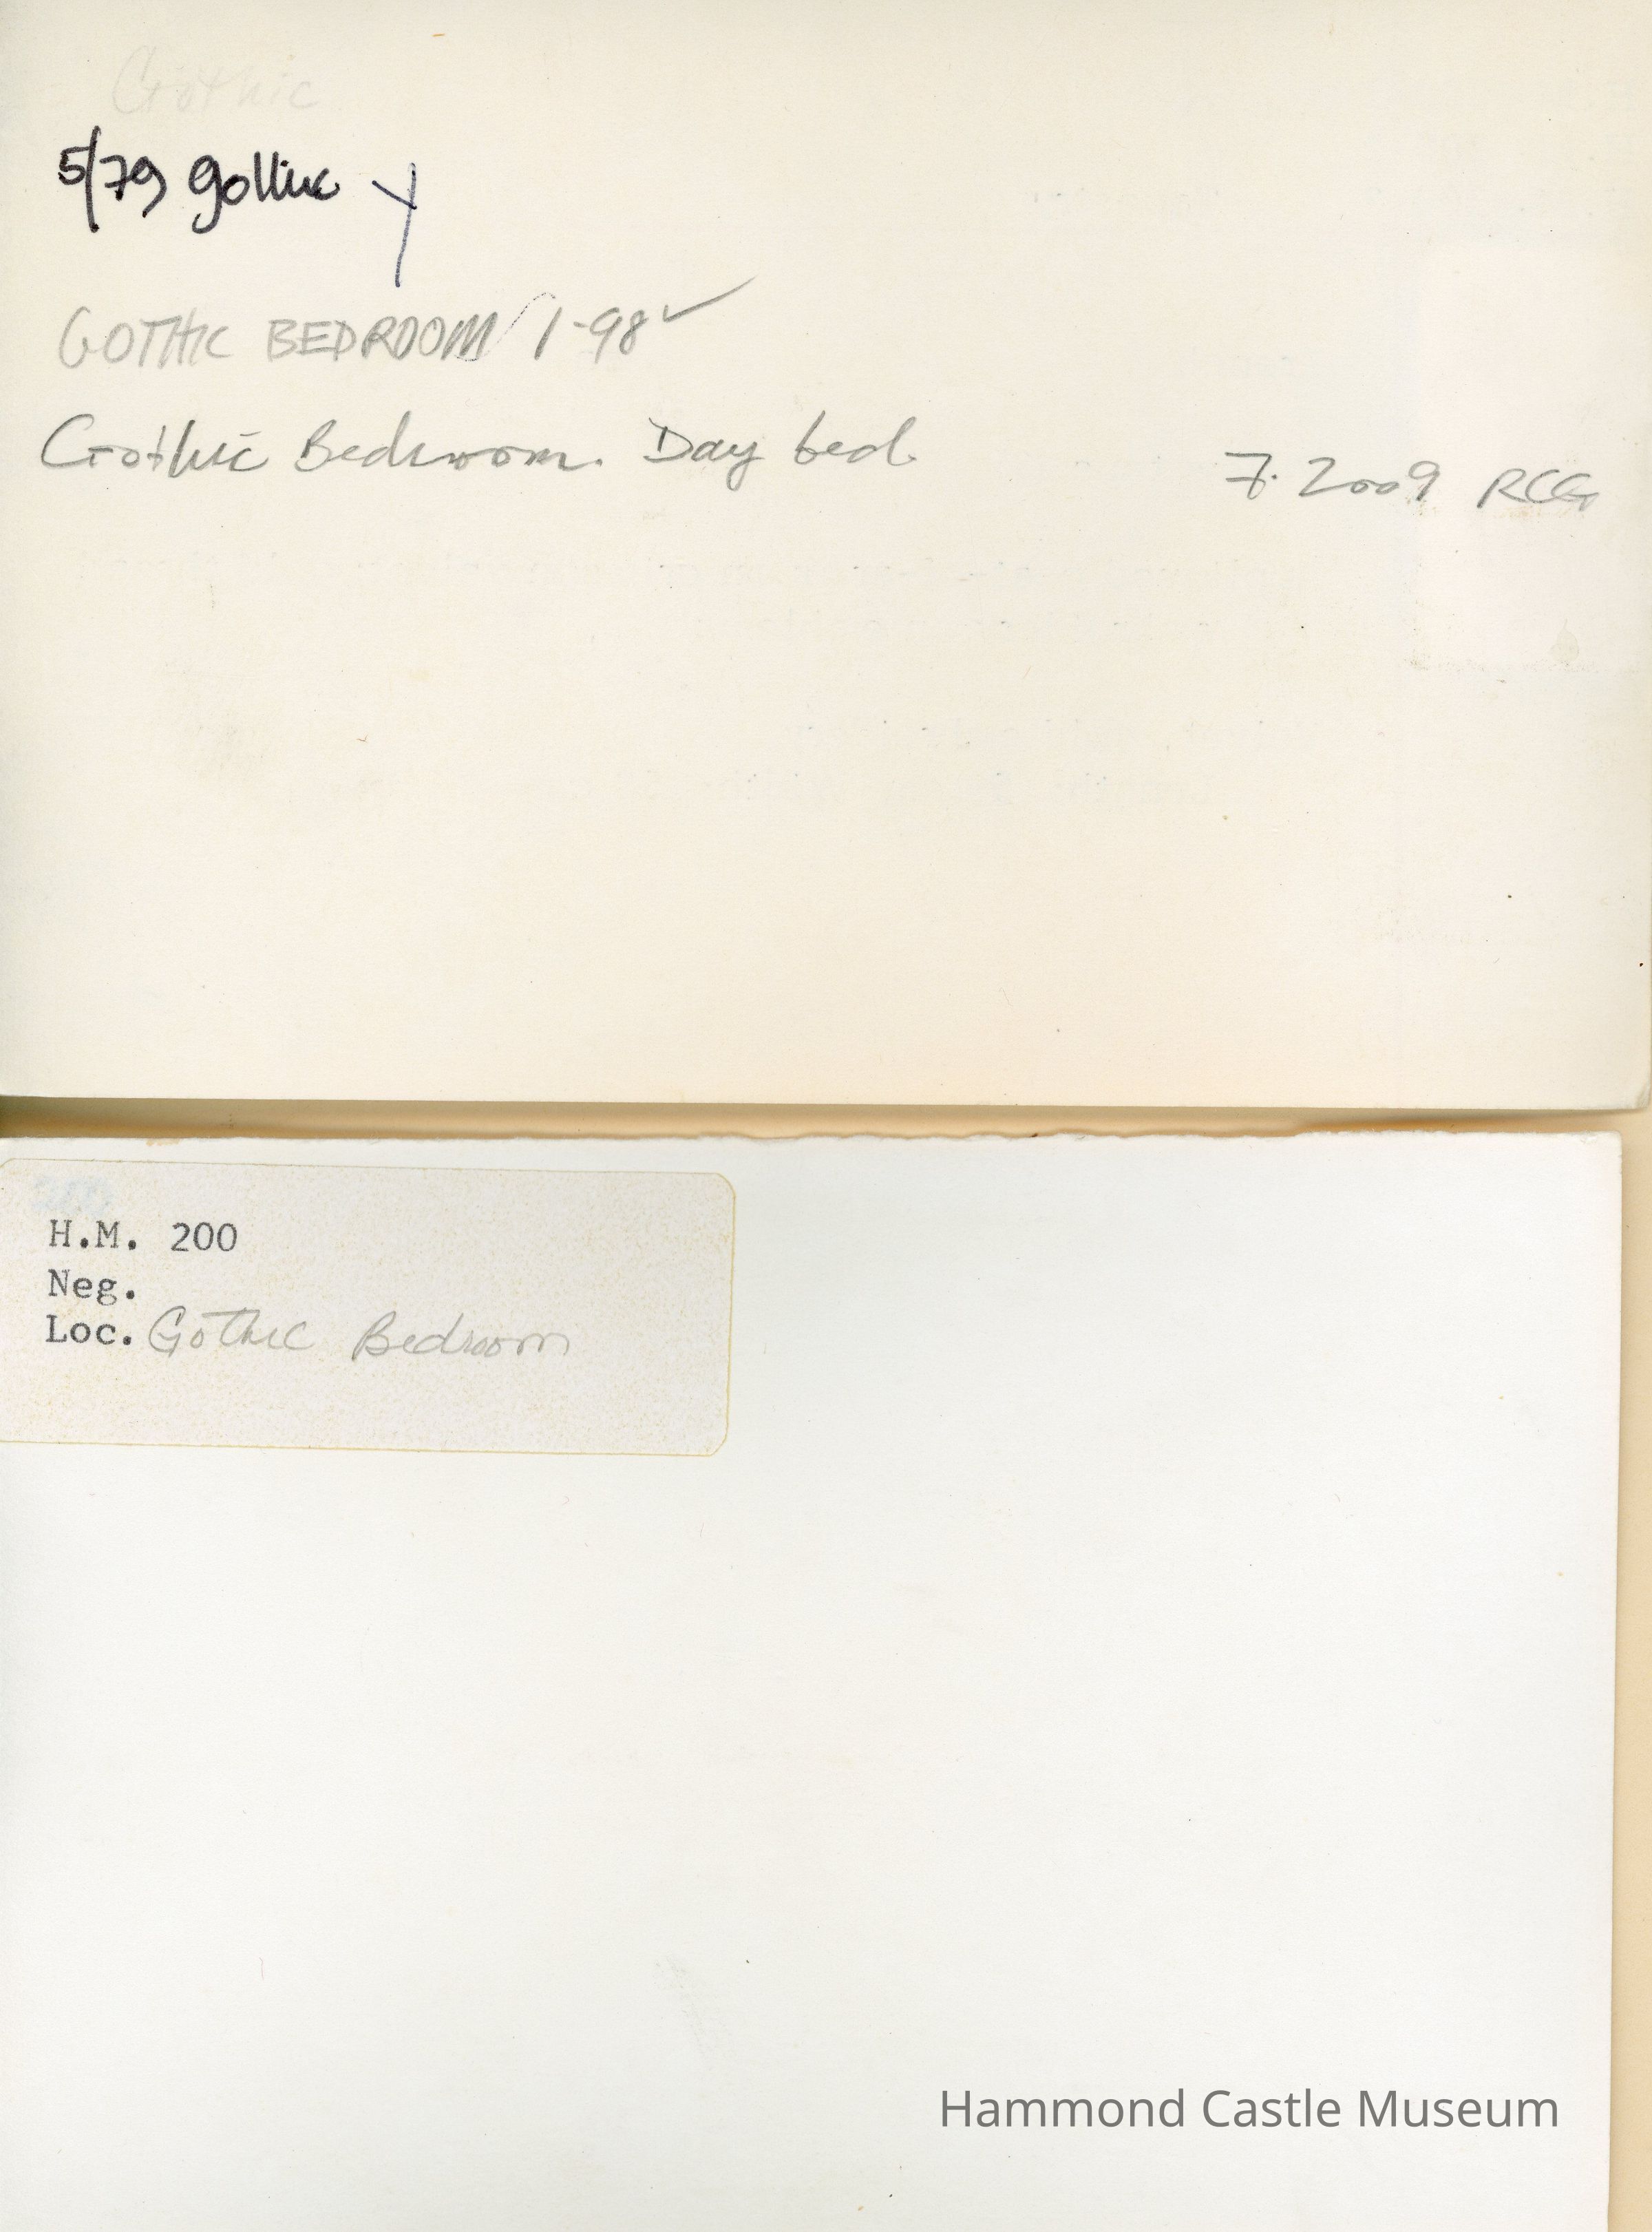 Gothic
5/79 gothic Y
GOTHIC BEDROOM 1-98 ✓
Gothic Bedroom. Day bed. 7.2009 RCG
H.M. 200
Neg.
Loc. Gothic Bedroom
Hammond Castle Museum